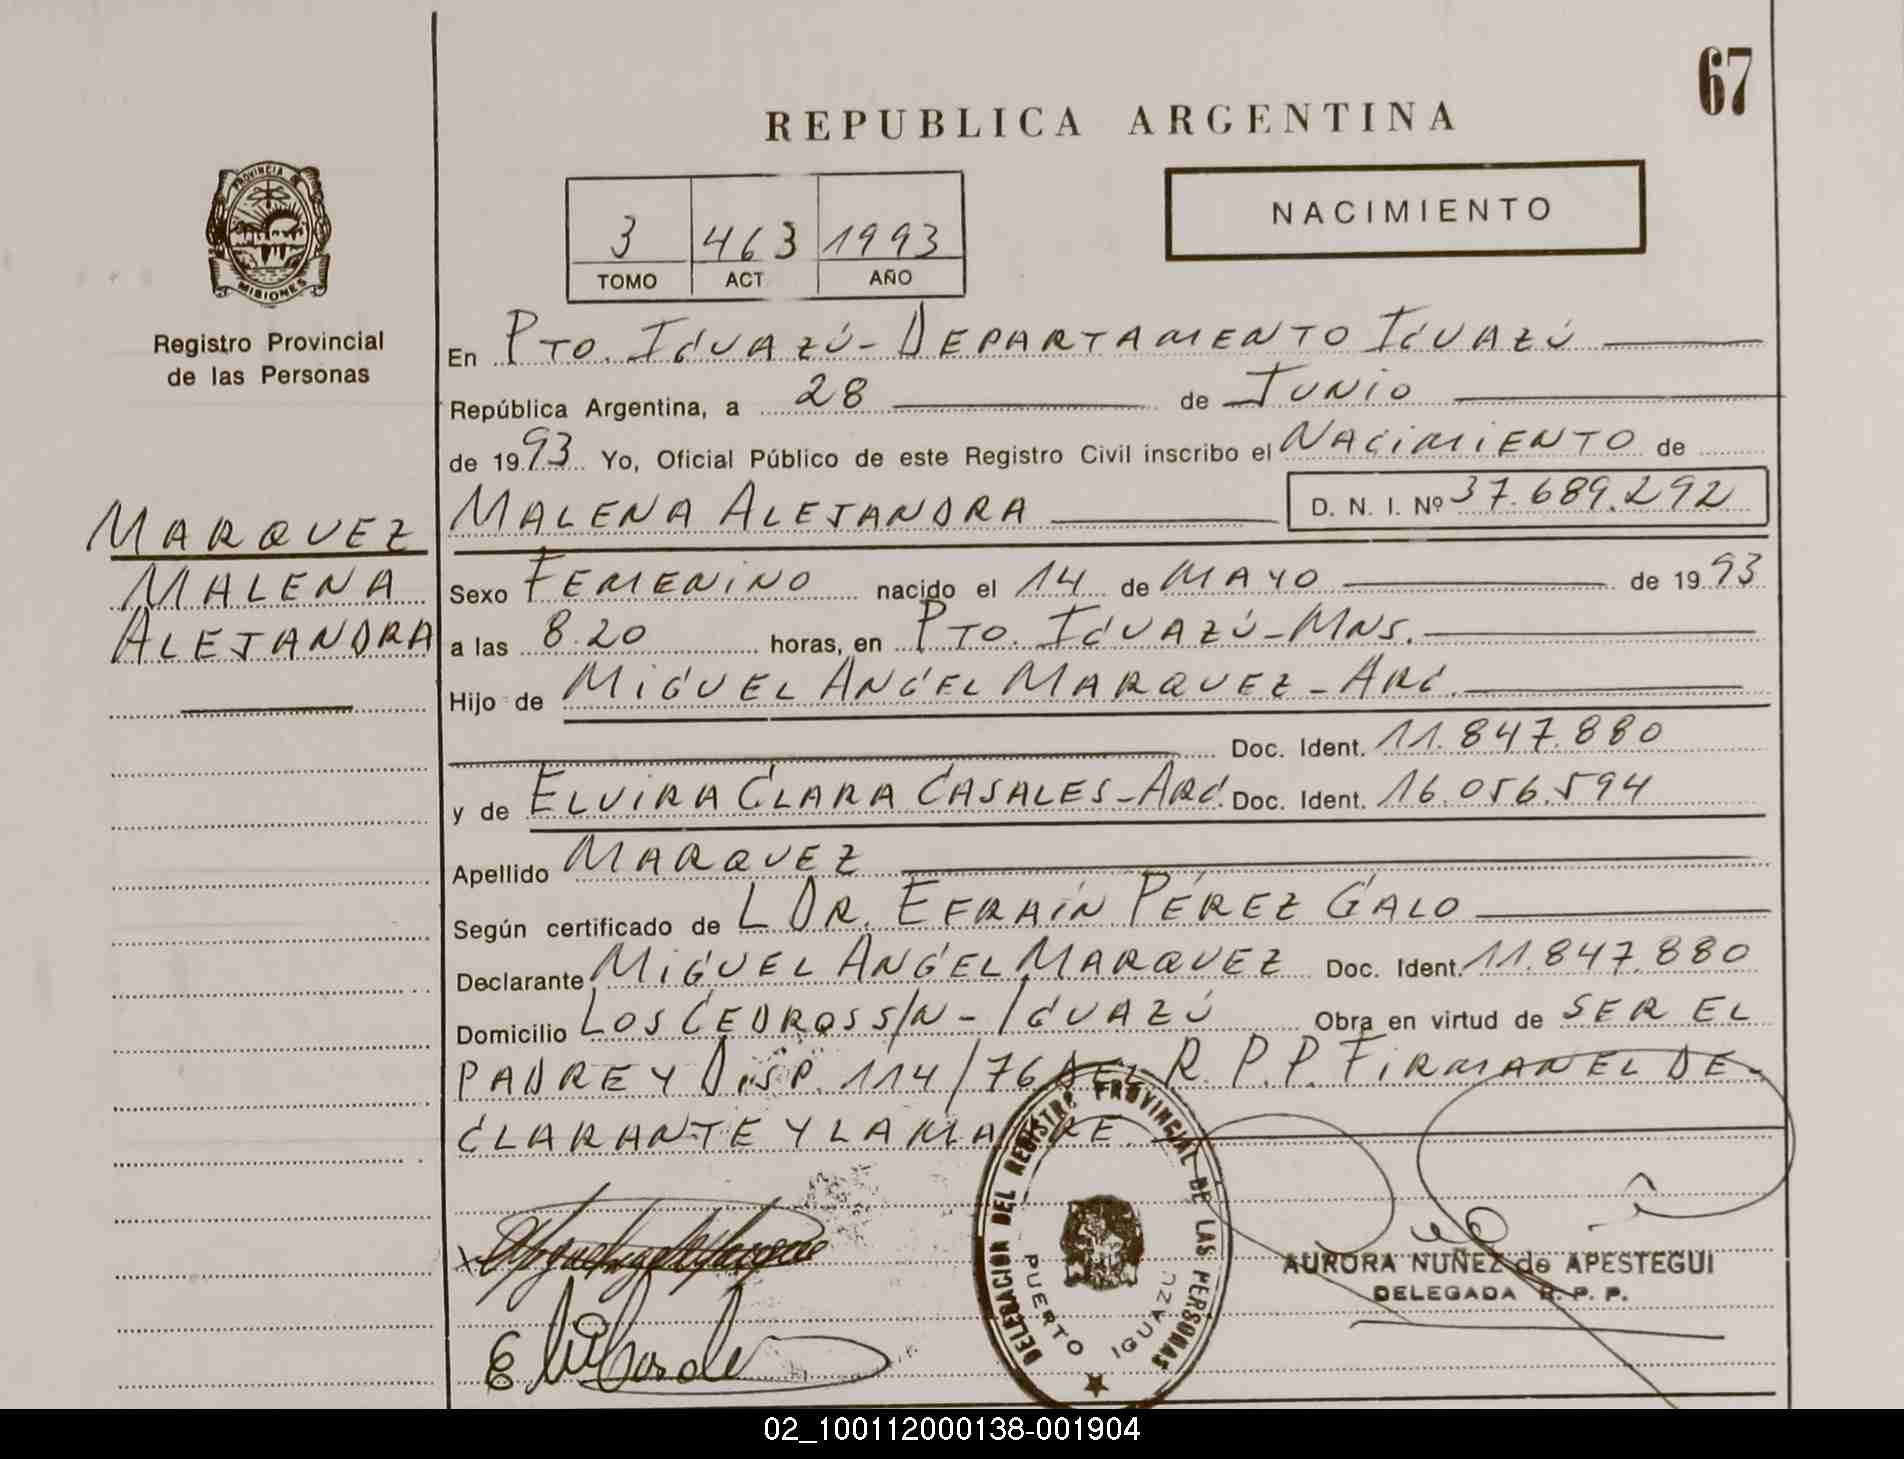 67
REPUBLICA ARGENTINA
PROVINCIA DE
MISIONES
Registro Provincial
de las Personas
3 463 1993
TOMO ACT AÑO
NACIMIENTO
En PTO. IGUAZÚ - DEPARTAMENTO IGUAZÚ
República Argentina, a 28 de JUNIO
de 1993 Yo, Oficial Público de este Registro Civil inscribo el NACIMIENTO de
MALENA ALEJANDRA D. N. I. Nº 37.689.292
MARQUEZ
MALENA
ALEJANDRA
Sexo FEMENINO nacido el 14 de MAYO de 1993
a las 8.20 horas, en PTO. IGUAZÚ - MNS.
Hijo de MIGUEL ANGEL MARQUEZ - ARG.
Doc. Ident. 11.847.880
y de ELVIRA CLARA CASALES - ARG. Doc. Ident. 16.056.594
Apellido MARQUEZ
Según certificado de L DR. EFRAÍN PÉREZ GALO
Declarante MIGUEL ANGEL MARQUEZ Doc. Ident. 11.847.880
Domicilio LOS CEDROS S/N - IGUAZÚ Obra en virtud de SER EL
PADRE Y DISP. 114/76 DEL R. P. P. FIRMAN EL DE-
CLARANTE Y LA MADRE.
DELEGACION DEL REGISTRO PROVINCIAL DE LAS PERSONAS
PUERTO IGUAZU
AURORA NUÑEZ de APESTEGUI
DELEGADA R. P. P.
02_100112000138-001904